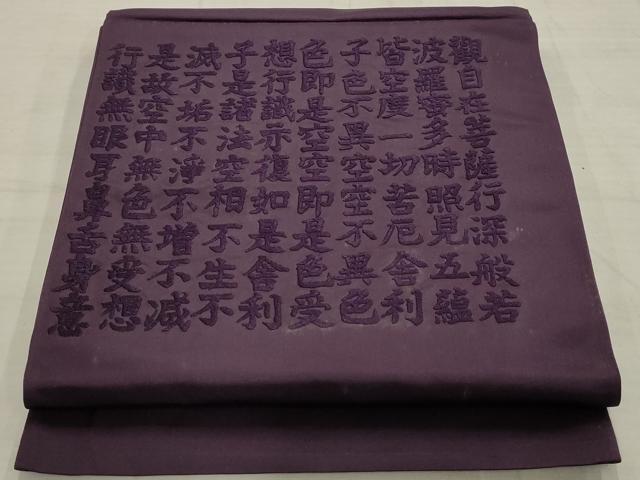 觀自在菩薩行深般若
波羅蜜多時照見五蘊
皆空度一切苦厄舍利
子色不異空空不異色
色即是空空即是色受
想行識亦復如是舍利
子是諸法空相不生不
滅不垢不淨不增不減
是故空中無色無受想
行識無眼耳鼻舌身意